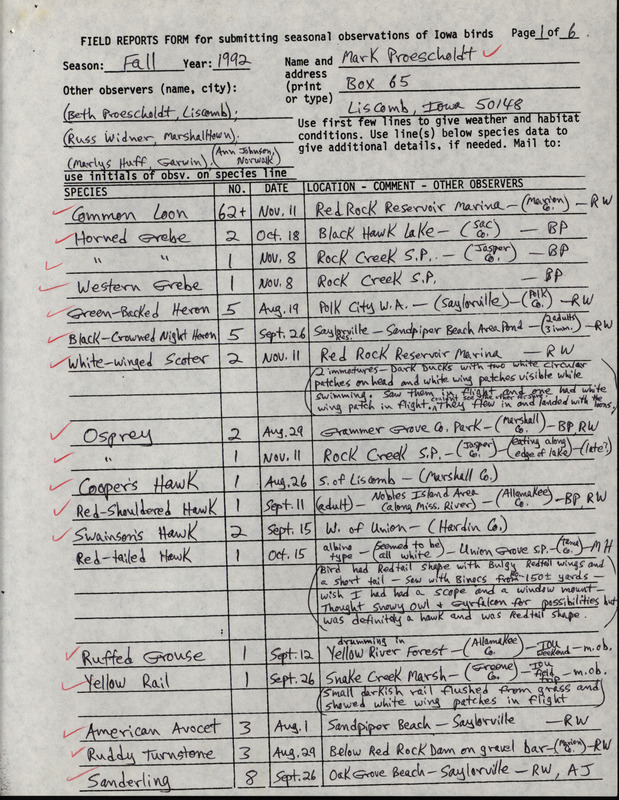 FIELD REPORTS FORM for submitting seasonal observations of Iowa birds Page 1 of 6.
Season: Fall Year: 1992 Name and address (print or type) Mark Proescholdt
Box 65
Liscomb, Iowa 50148
Other observers (name, city):
(Beth Proescholdt, Liscomb);
(Russ Widner, Marshalltown).
(Marlys Huff, Garwin), (Ann Johnson, Norwalk)
use initials of obsv. on species line
Use first few lines to give weather and habitat
conditions. Use line(s) below species data to
give additional details, if needed. Mail to:
SPECIES NO. DATE LOCATION - COMMENT - OTHER OBSERVERS
Common Loon 62+ Nov. 11 Red Rock Reservoir Marina - (Marion Co.) - RW
Horned Grebe 2 Oct. 18 Black Hawk Lake - (Sac Co.) - BP
" " 1 Nov. 8 Rock Creek S.P. - (Jasper Co.) - BP
Western Grebe 1 Nov. 8 Rock Creek S.P. - BP
Green-Backed Heron 5 Aug. 19 Polk City W.A. - (Saylorville) - (Polk Co.) - RW
Black-Crowned Night Heron 5 Sept. 26 Saylorville Res. - Sandpiper Beach Area Pond - (2 adults 3 imm.) - RW
White-winged Scoter 2 Nov. 11 Red Rock Reservoir Marina - RW
(2 immatures - Dark Ducks with two white circular
patches on head and white wing patches visible while
swimming. Saw them in flight and one had white
wing patch in flight. They flew in and landed with the loons.)
Osprey 2 Aug. 29 Grammer Grove Co. Park - (Marshall Co.) - BP RW
" 1 Nov. 11 Rock Creek S.P. - (Jasper Co.) - (eating along edge of lake) - (late?)
Cooper's Hawk 1 Aug. 26 S. of Liscomb - (Marshall Co.)
Red-Shouldered Hawk 1 Sept. 11 (adult) - Nobles Island Area (along Miss. River) - (Allamakee Co.) - BP, RW
Swainson's Hawk 2 Sept. 15 W. of Union - (Hardin Co.)
Red-tailed Hawk 1 Oct. 15 albino type - (seemed to be all white) - Union Grove S.P. - (Tama Co.) - MH
(Bird had Redtail shape with Bulgy Redtail wings and
a short tail - saw with Binocs from 150± yards -
wish I had had a scope and a window mount -
Thought snowy owl + Gyrfalcon for possibilities but
was definitely a hawk and was Redtail shape.
Ruffed Grouse 1 Sept. 12 drumming in Yellow River Forest - (Allamakee Co.) - IOU weekend - m.ob.
Yellow Rail 1 Sept. 26 Snake Creek Marsh - (Greene Co.) - IOU field trip - m.ob.
(Small darkish rail flushed from grass and
showed white wing patches in flight)
American Avocet 3 Aug. 1 Sandpiper Beach - Saylorville - RW
Ruddy Turnstone 3 Aug. 29 Below Red Rock Dam on gravel bar - (Marion Co.) - RW
Sanderling 8 Sept. 26 Oak Grove Beach - Saylorville - RW, AJ